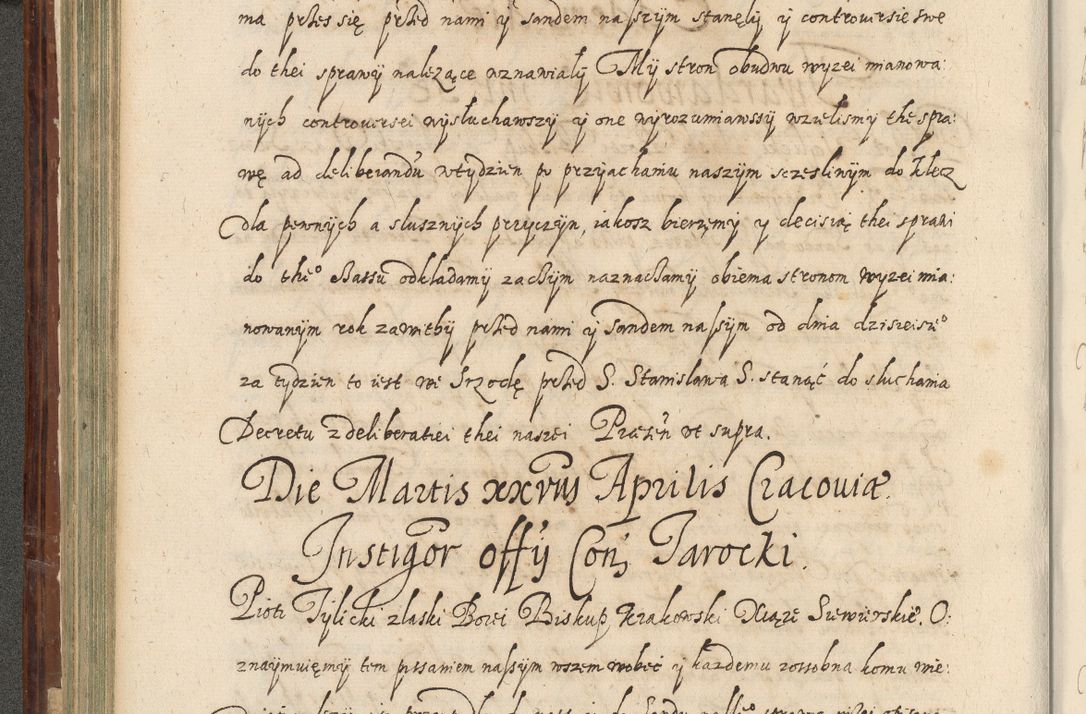 ma przes się przed nami y sandem naszym stanęly y controversie swe
do thei sprawy nalezące wznawialy My stron obudwu wyzei mianowa:
nych controversei wysluchawszy y one wyrozumiawssy wzielismy the spra:
wę ad deliberandu wtydzien po przyachaniu naszym sczeslinym do Klecz
dla pewnych a slusznych przyczyn, iakosz bierzemy y decisią thei sprawi
do the° czassu odkladamy zaczym naznaczamy obiema stronom wyzei mia:
nowanym rok zawithy przed nami y Sandem naszym od dnia dzisieisze°
za tydzien to iest we Srzodę przed S. Stanislawa S. stanąć do sluchania
Decretu z deliberatiei thei naszei Præsen ut supra.
Die Martis xxvii Aprilis Cracoviæ.
Instigor offy Con Jarocki.
Piotr Tylicki zlaski Bozei Biskup Krakowski Xiąze Siewierskie. O:
znaymuiemy tem pissaniem naszym wszem wobec y kazdemu zossobna komu wie: